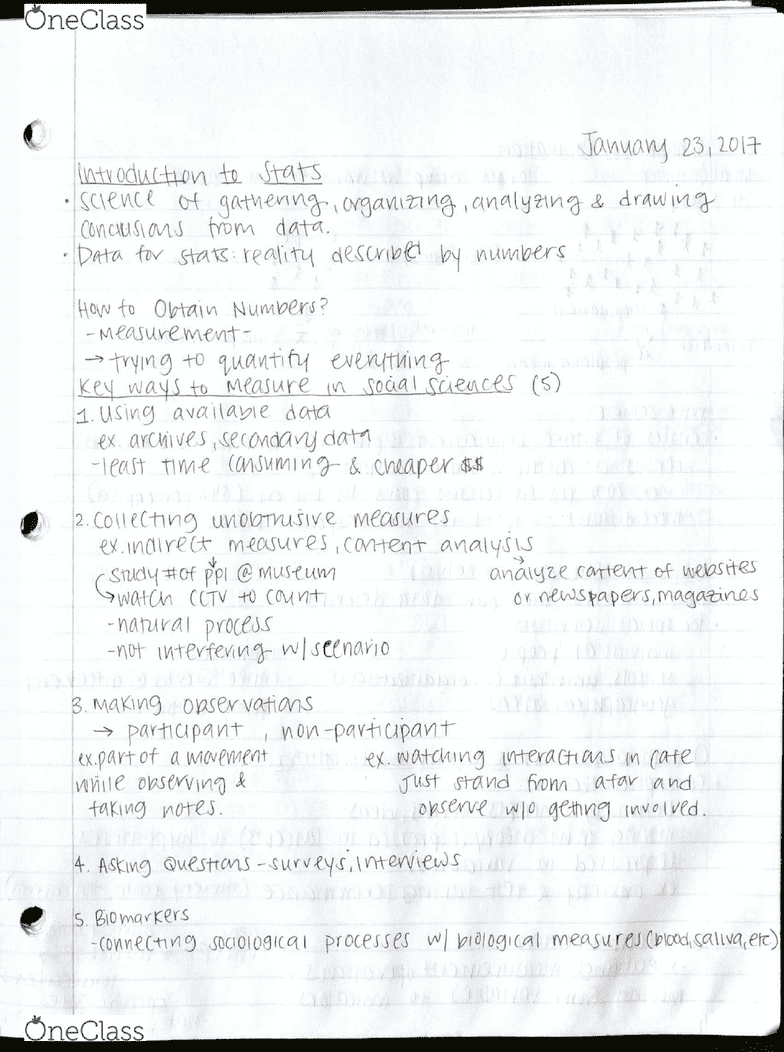 OneClass
January 23, 2017
Introduction to Stats
• Science of gathering, organizing, analyzing & drawing
conclusions from data.
• Data for stats: reality described by numbers
How to Obtain Numbers?
- Measurement -
→ trying to quantify everything
Key ways to measure in social sciences (5)
1. Using available data
ex. archives, secondary data
- least time consuming & cheaper $$
2. Collecting unobtrusive measures
ex. indirect measures, content analysis
study # of ppl @ museum analyze content of websites
↳ watch CCTV to count or newspapers, magazines
- natural process
- not interfering w/ scenario
3. Making observations
→ participant, non-participant
ex. part of a movement ex. watching interactions in cafe
while observing & Just stand from afar and
taking notes. observe w/o getting involved.
4. Asking Questions - surveys, interviews
5. Biomarkers
- connecting sociological processes w/ biological measures (blood, saliva, etc.)
OneClass